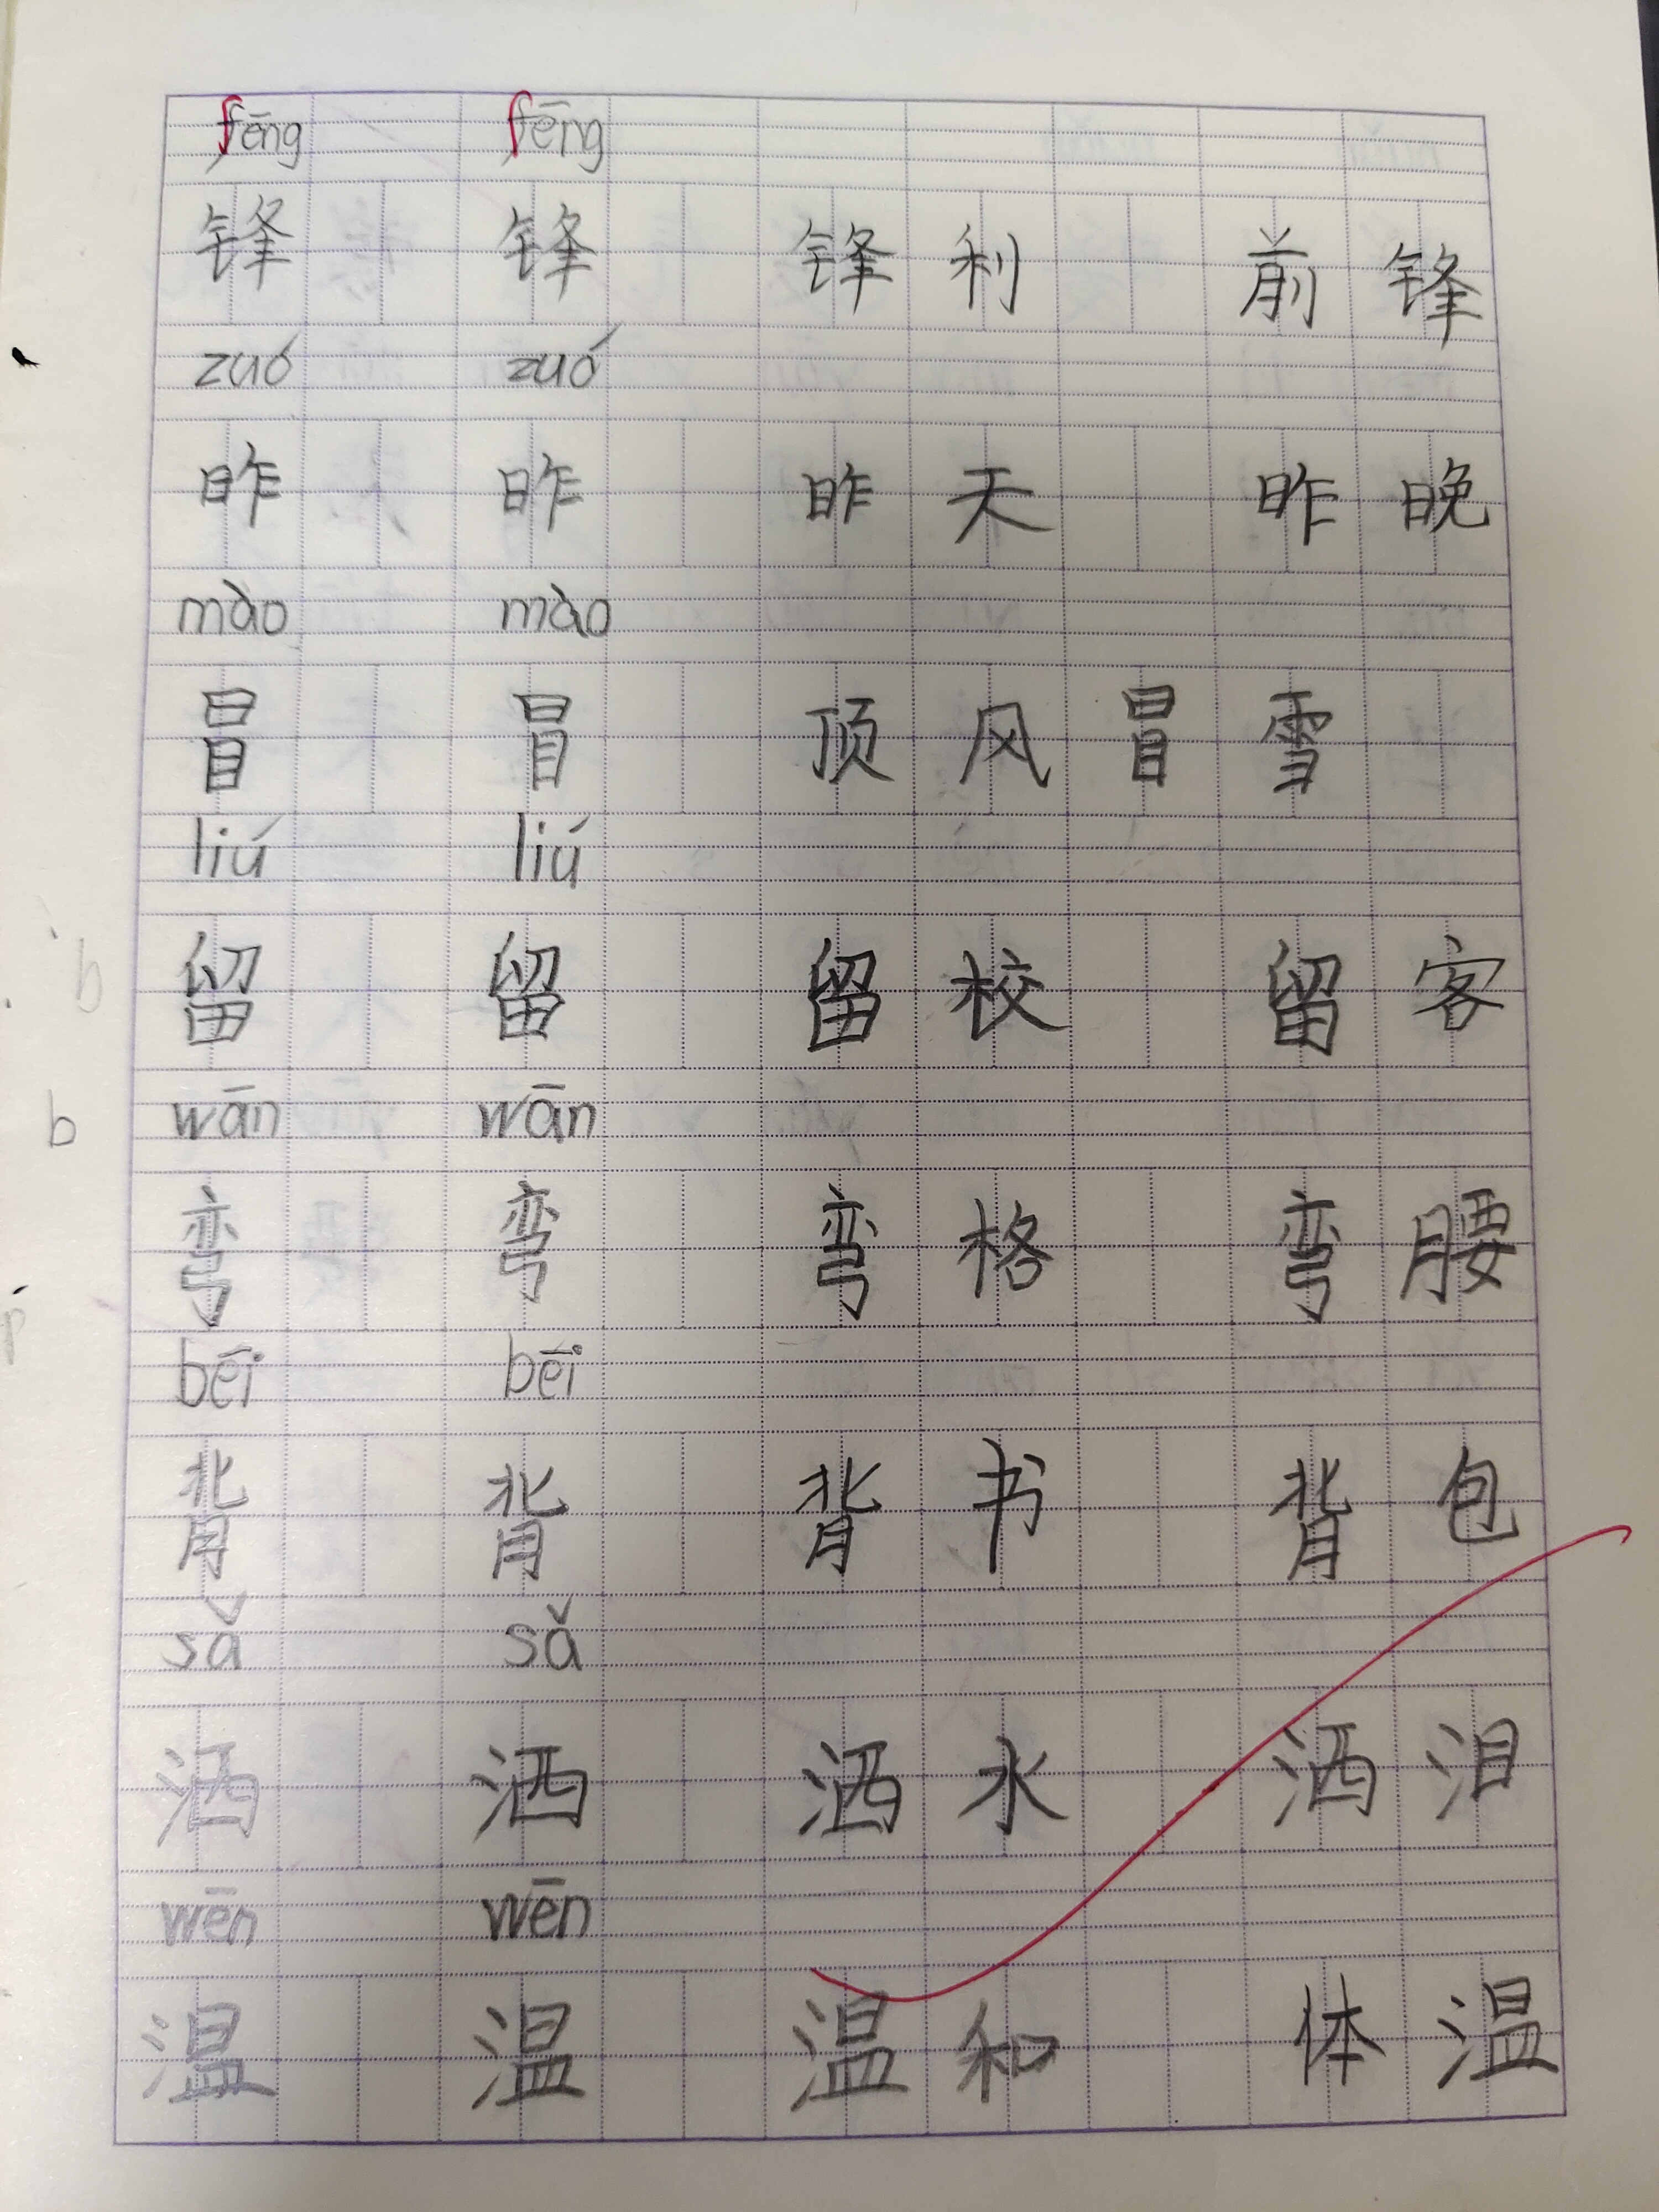 fēng fēng
锋 锋 锋利 前锋
zuó zuó
昨 昨 昨天 昨晚
mào mào
冒 冒 顶风冒雪
liú liú
留 留 留校 留客
b
b
wān wān
弯 弯 弯格 弯腰
p
bēi bēi
背 背 背书 背包
sǎ sǎ
洒 洒 洒水 洒泪
wēn wēn
温 温 温和 体温